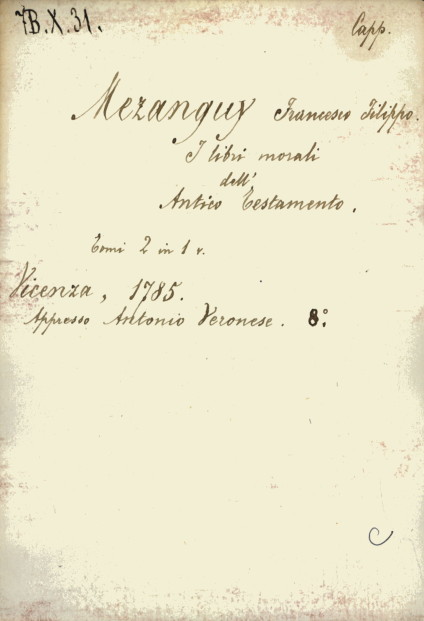 7B.X.31.
Capp.
Mezanguy Francesco Filippo.
I libri morali
dell'
Antico Testamento.
Tomi 2 in 1 v.
Vicenza, 1785.
Appresso Antonio Veronese. 8°.
C